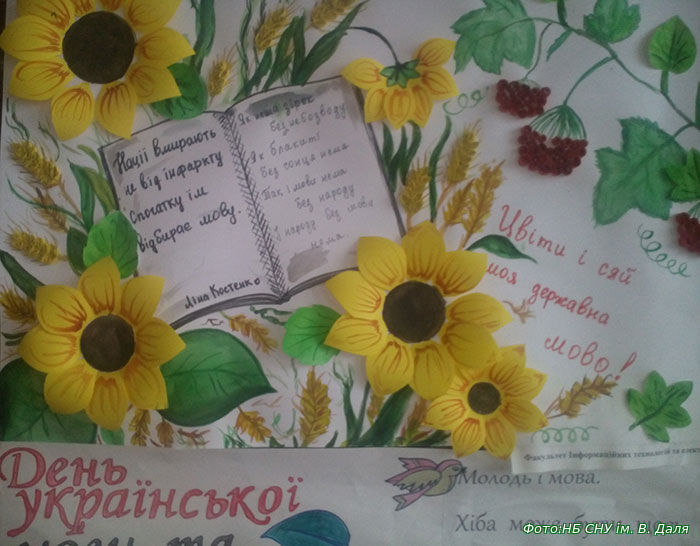 Нації вмирають
не від інфаркту
Спочатку їм
відбирає мову.
Ліна Костенко
Як нема зірок
без небозводу
Як блакиті
без сонця нема
Так і мови нема
без народу
і народу без мови
нема
Цвіти і сяй
моя державна
мово!
Факультет Інформаційних технологій та
День
української
Молодь і мова.
Хіба може бути
Фото:НБ СНУ ім. В. Даля